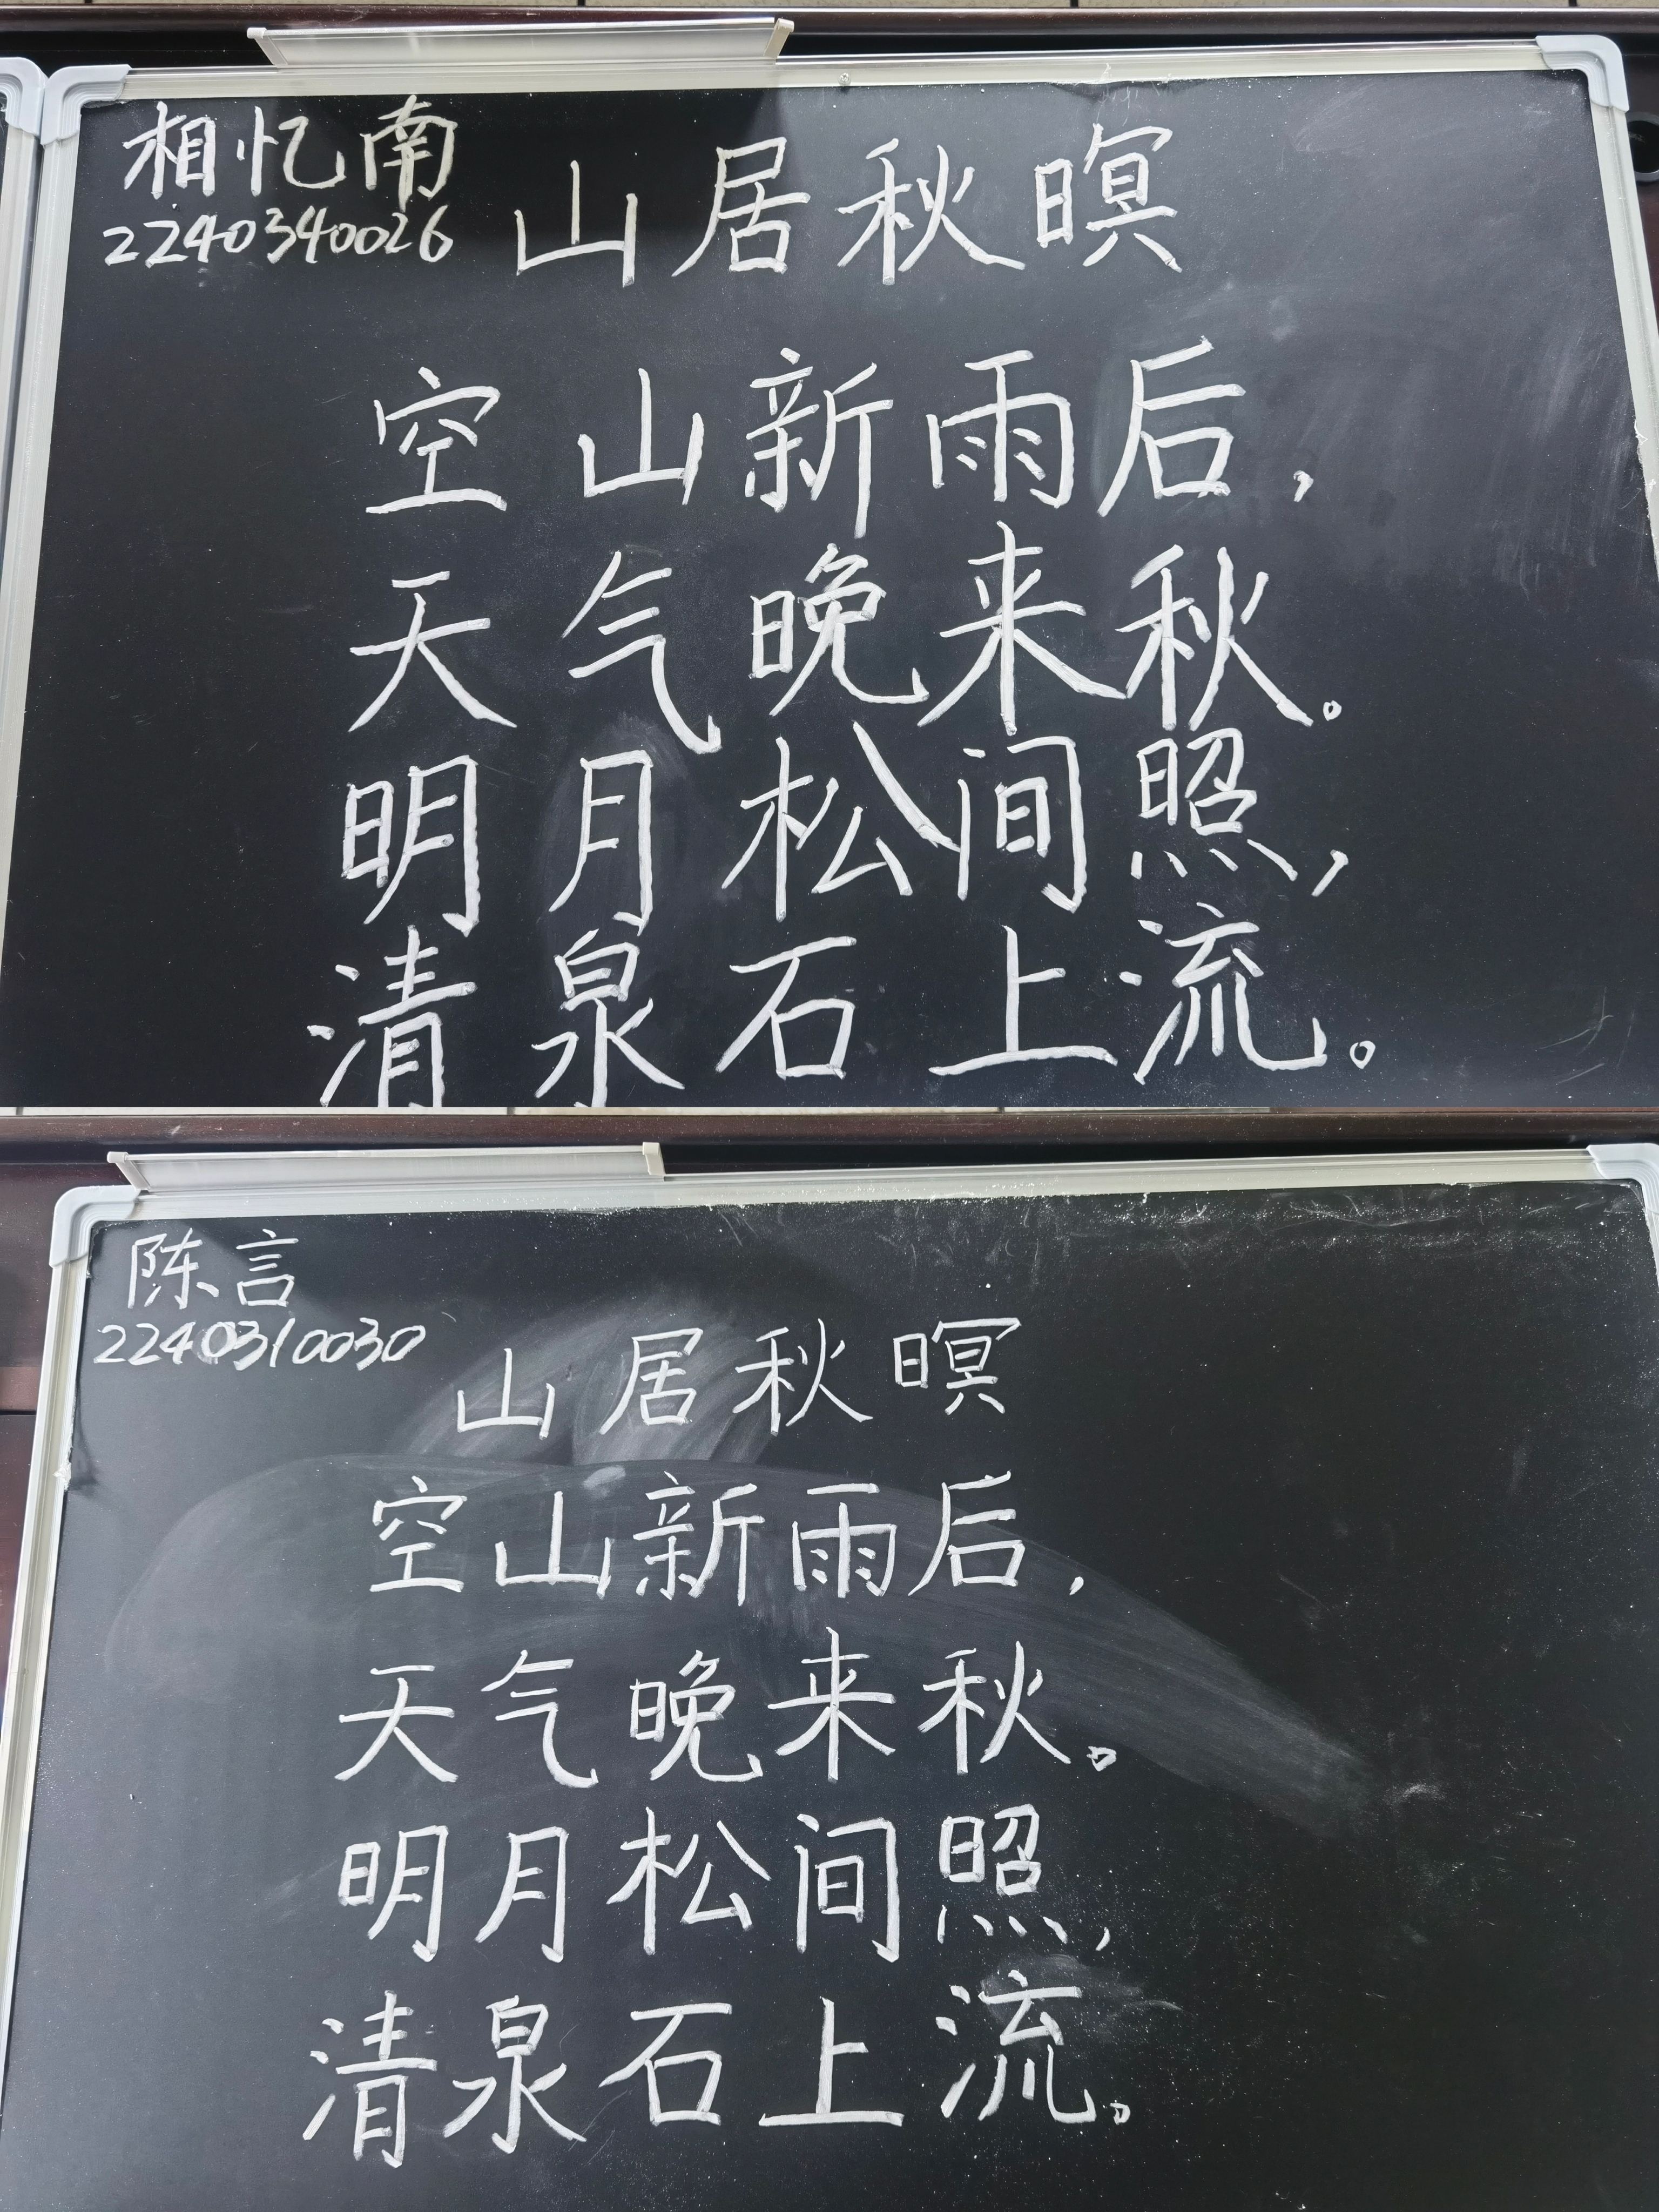 相忆南
2240340026
山居秋暝
空山新雨后，
天气晚来秋。
明月松间照，
清泉石上流。
陈言
2240310030
山居秋暝
空山新雨后，
天气晚来秋。
明月松间照，
清泉石上流。